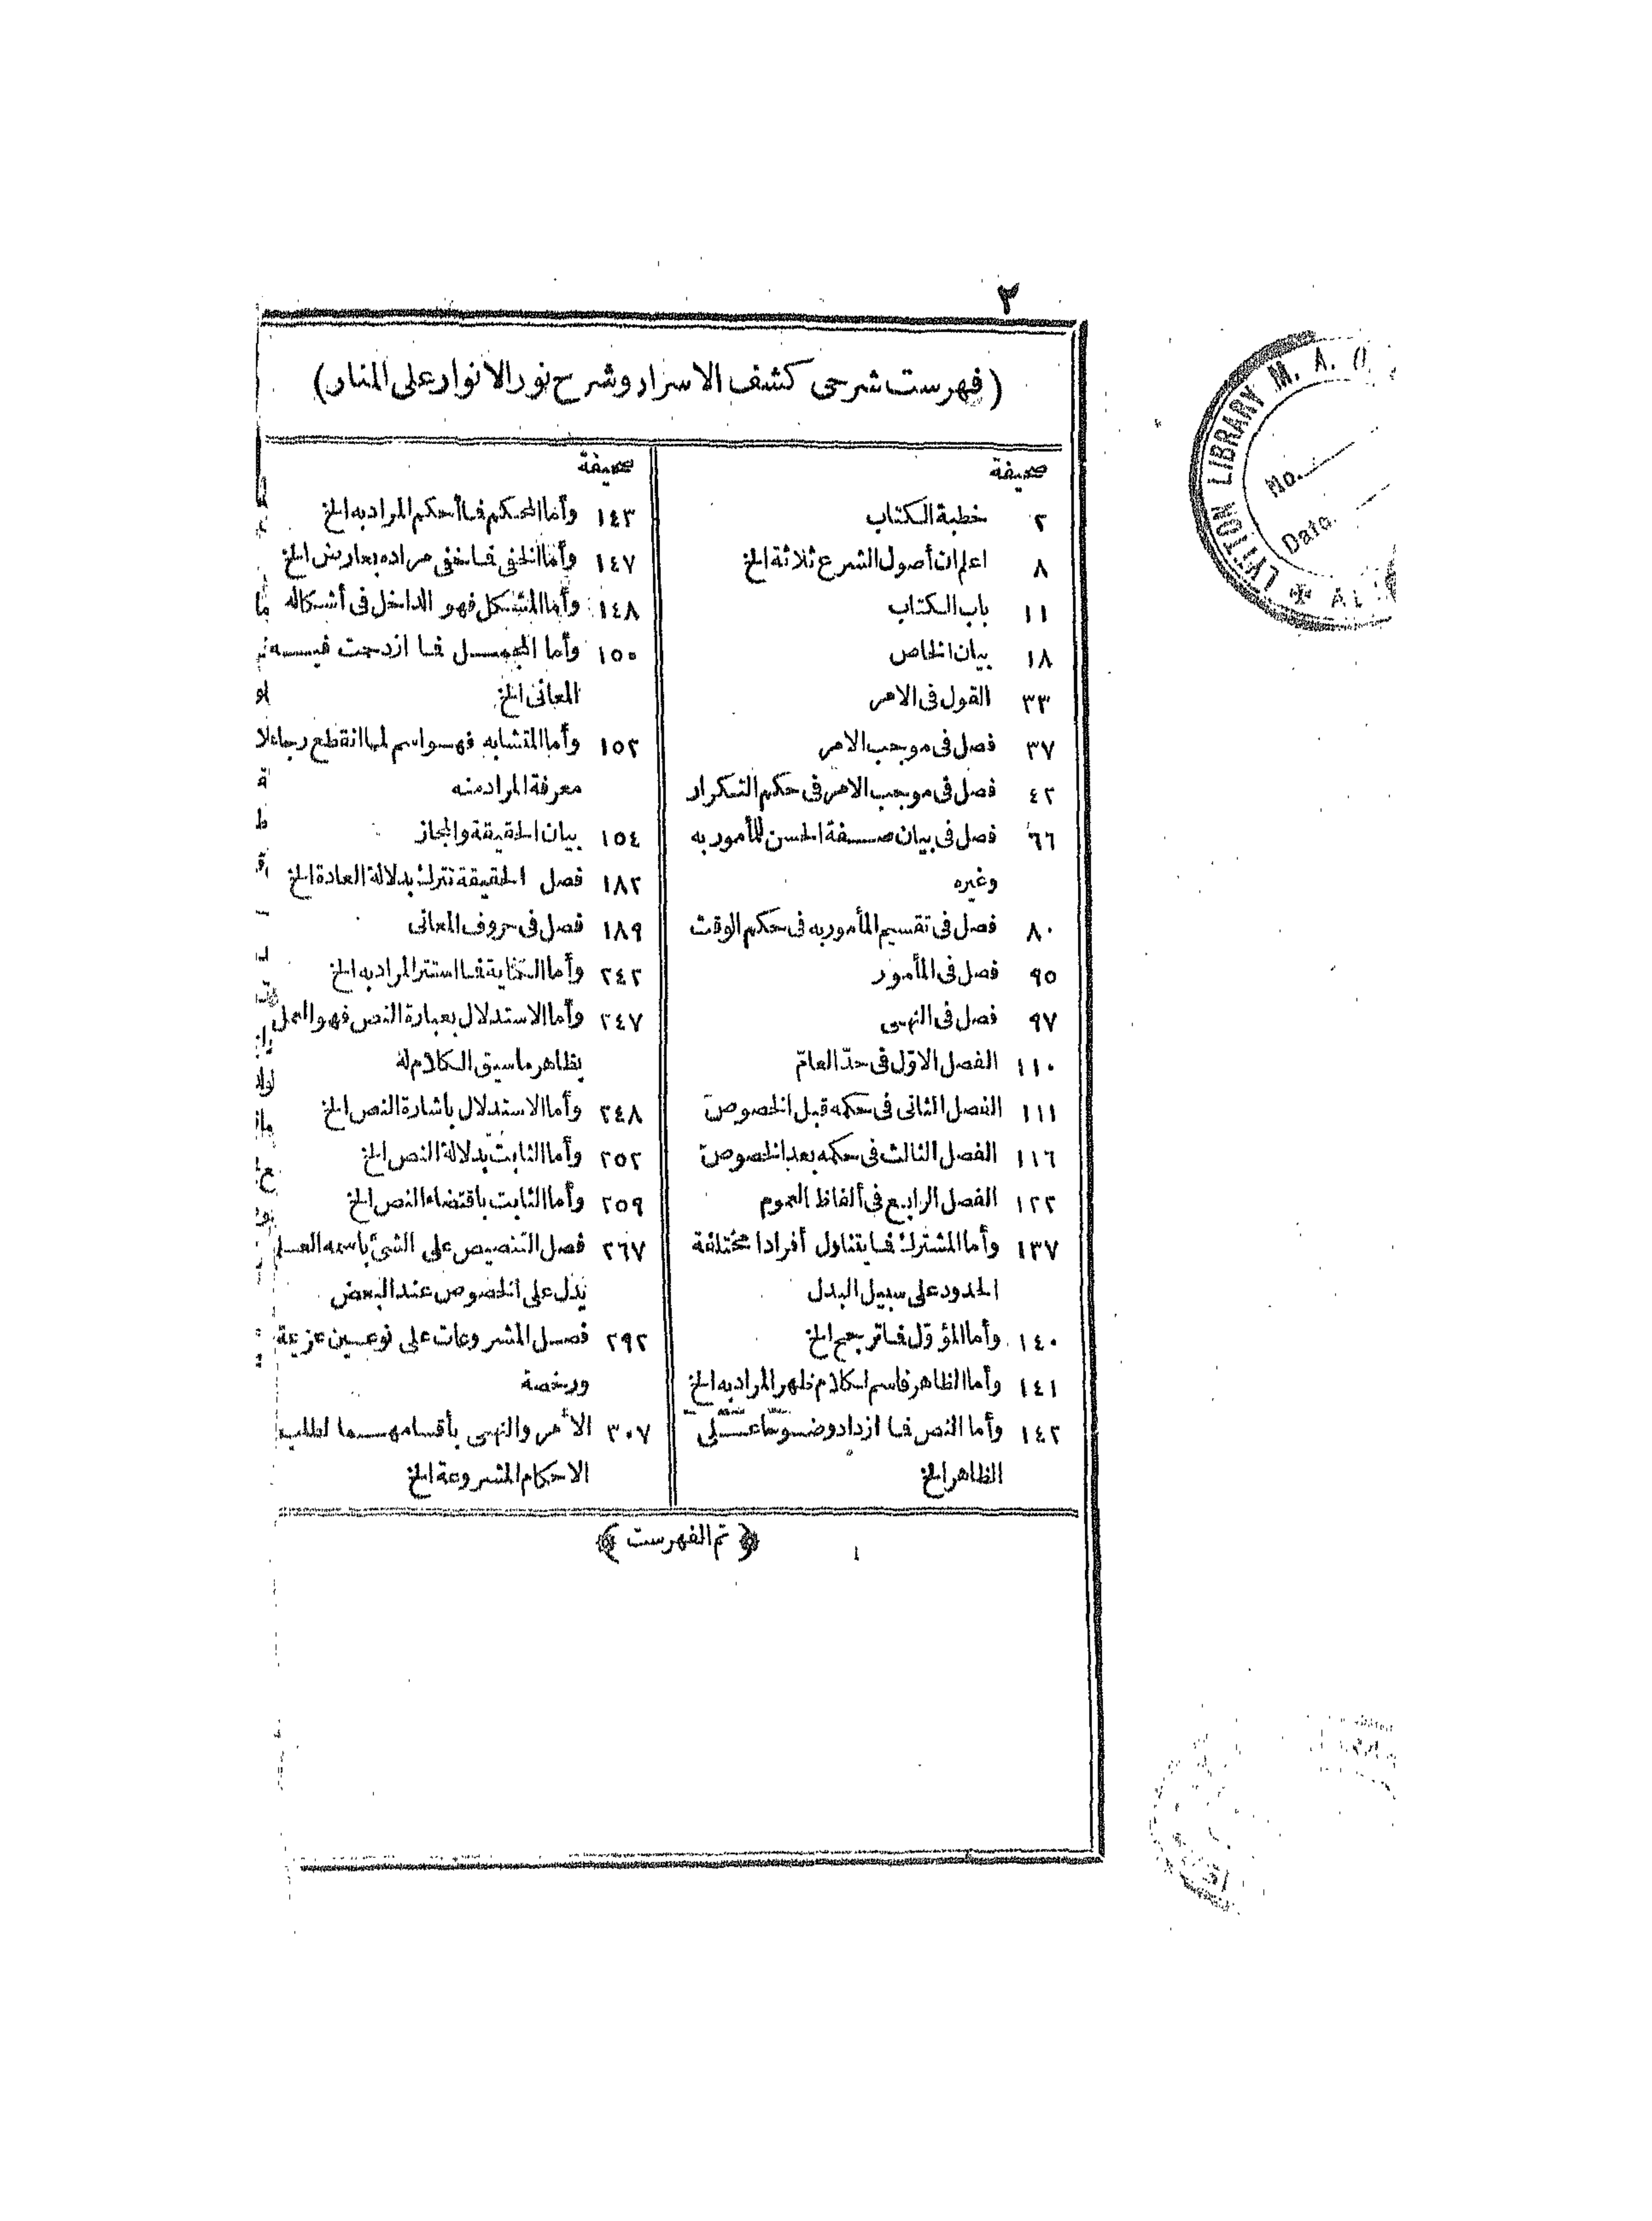 ٢
(فهرست شرحى كشف الاسرار وشرح نور الانوار على المنار)
صحيفة
٢ خطبة الكتاب
٨ اعلم ان أصول الشرع ثلاثة الخ
١١ باب الكتاب
١٨ بيان الخاص
٣٣ القول فى الامر
٣٧ فصل فى موجب الامر
٤٢ فصل فى موجب الامر فى حكم التكرار
٦٦ فصل فى بيان صفة الحسن للمأمور به
وغيره
٨٠ فصل فى تقسيم المأمور به فى حكم الوقت
٩٥ فصل فى المأمور
٩٧ فصل فى النهى
١١٠ الفصل الاوّل فى حدّ العامّ
١١١ الفصل الثانى فى حكمه قبل الخصوص
١١٦ الفصل الثالث فى حكمه بعد الخصوص
١٢٢ الفصل الرابع فى ألفاظ العموم
١٣٧ وأما المشترك فما يتناول أفرادا مختلفة
الحدود على سبيل البدل
١٤٠ وأما المؤوّل فما ترجح الخ
١٤١ وأما الظاهر فاسم لكلام ظهر المراد به الخ
١٤٢ وأما النص فما ازداد وضوحا على
الظاهر الخ
صحيفة
١٤٣ وأما المحكم فما أحكم المراد به الخ
١٤٧ وأما الخفى فما خفى مراده بعارض الخ
١٤٨ وأما المشكل فهو الداخل فى أشكاله
١٥٠ وأما المجمل فما ازدحمت فيه
المعانى الخ
١٥٢ وأما المتشابه فهو اسم لما انقطع رجاء
معرفة المراد منه
١٥٤ بيان الحقيقة والمجاز
١٨٢ فصل الحقيقة تترك بدلالة العادة الخ
١٨٩ فصل فى حروف المعانى
٢٤٢ وأما الكناية فما استتر المراد به الخ
٢٤٧ وأما الاستدلال بعبارة النص فهو العمل
بظاهر ما سيق الكلام له
٢٤٨ وأما الاستدلال باشارة النص الخ
٢٥٢ وأما الثابت بدلالة النص الخ
٢٥٩ وأما الثابت باقتضاء النص الخ
٢٦٧ فصل التنصيص على الشئ باسمه العلم
يدل على الخصوص عند البعض
٢٩٢ فصل المشروعات على نوعين عزيمة
ورخصة
٣٠٧ الأمر والنهى بأقسامهما لطلب
الاحكام المشروعة الخ
﴿ تم الفهرست ﴾
LYTTON LIBRARY M. A. O.
No.
Date